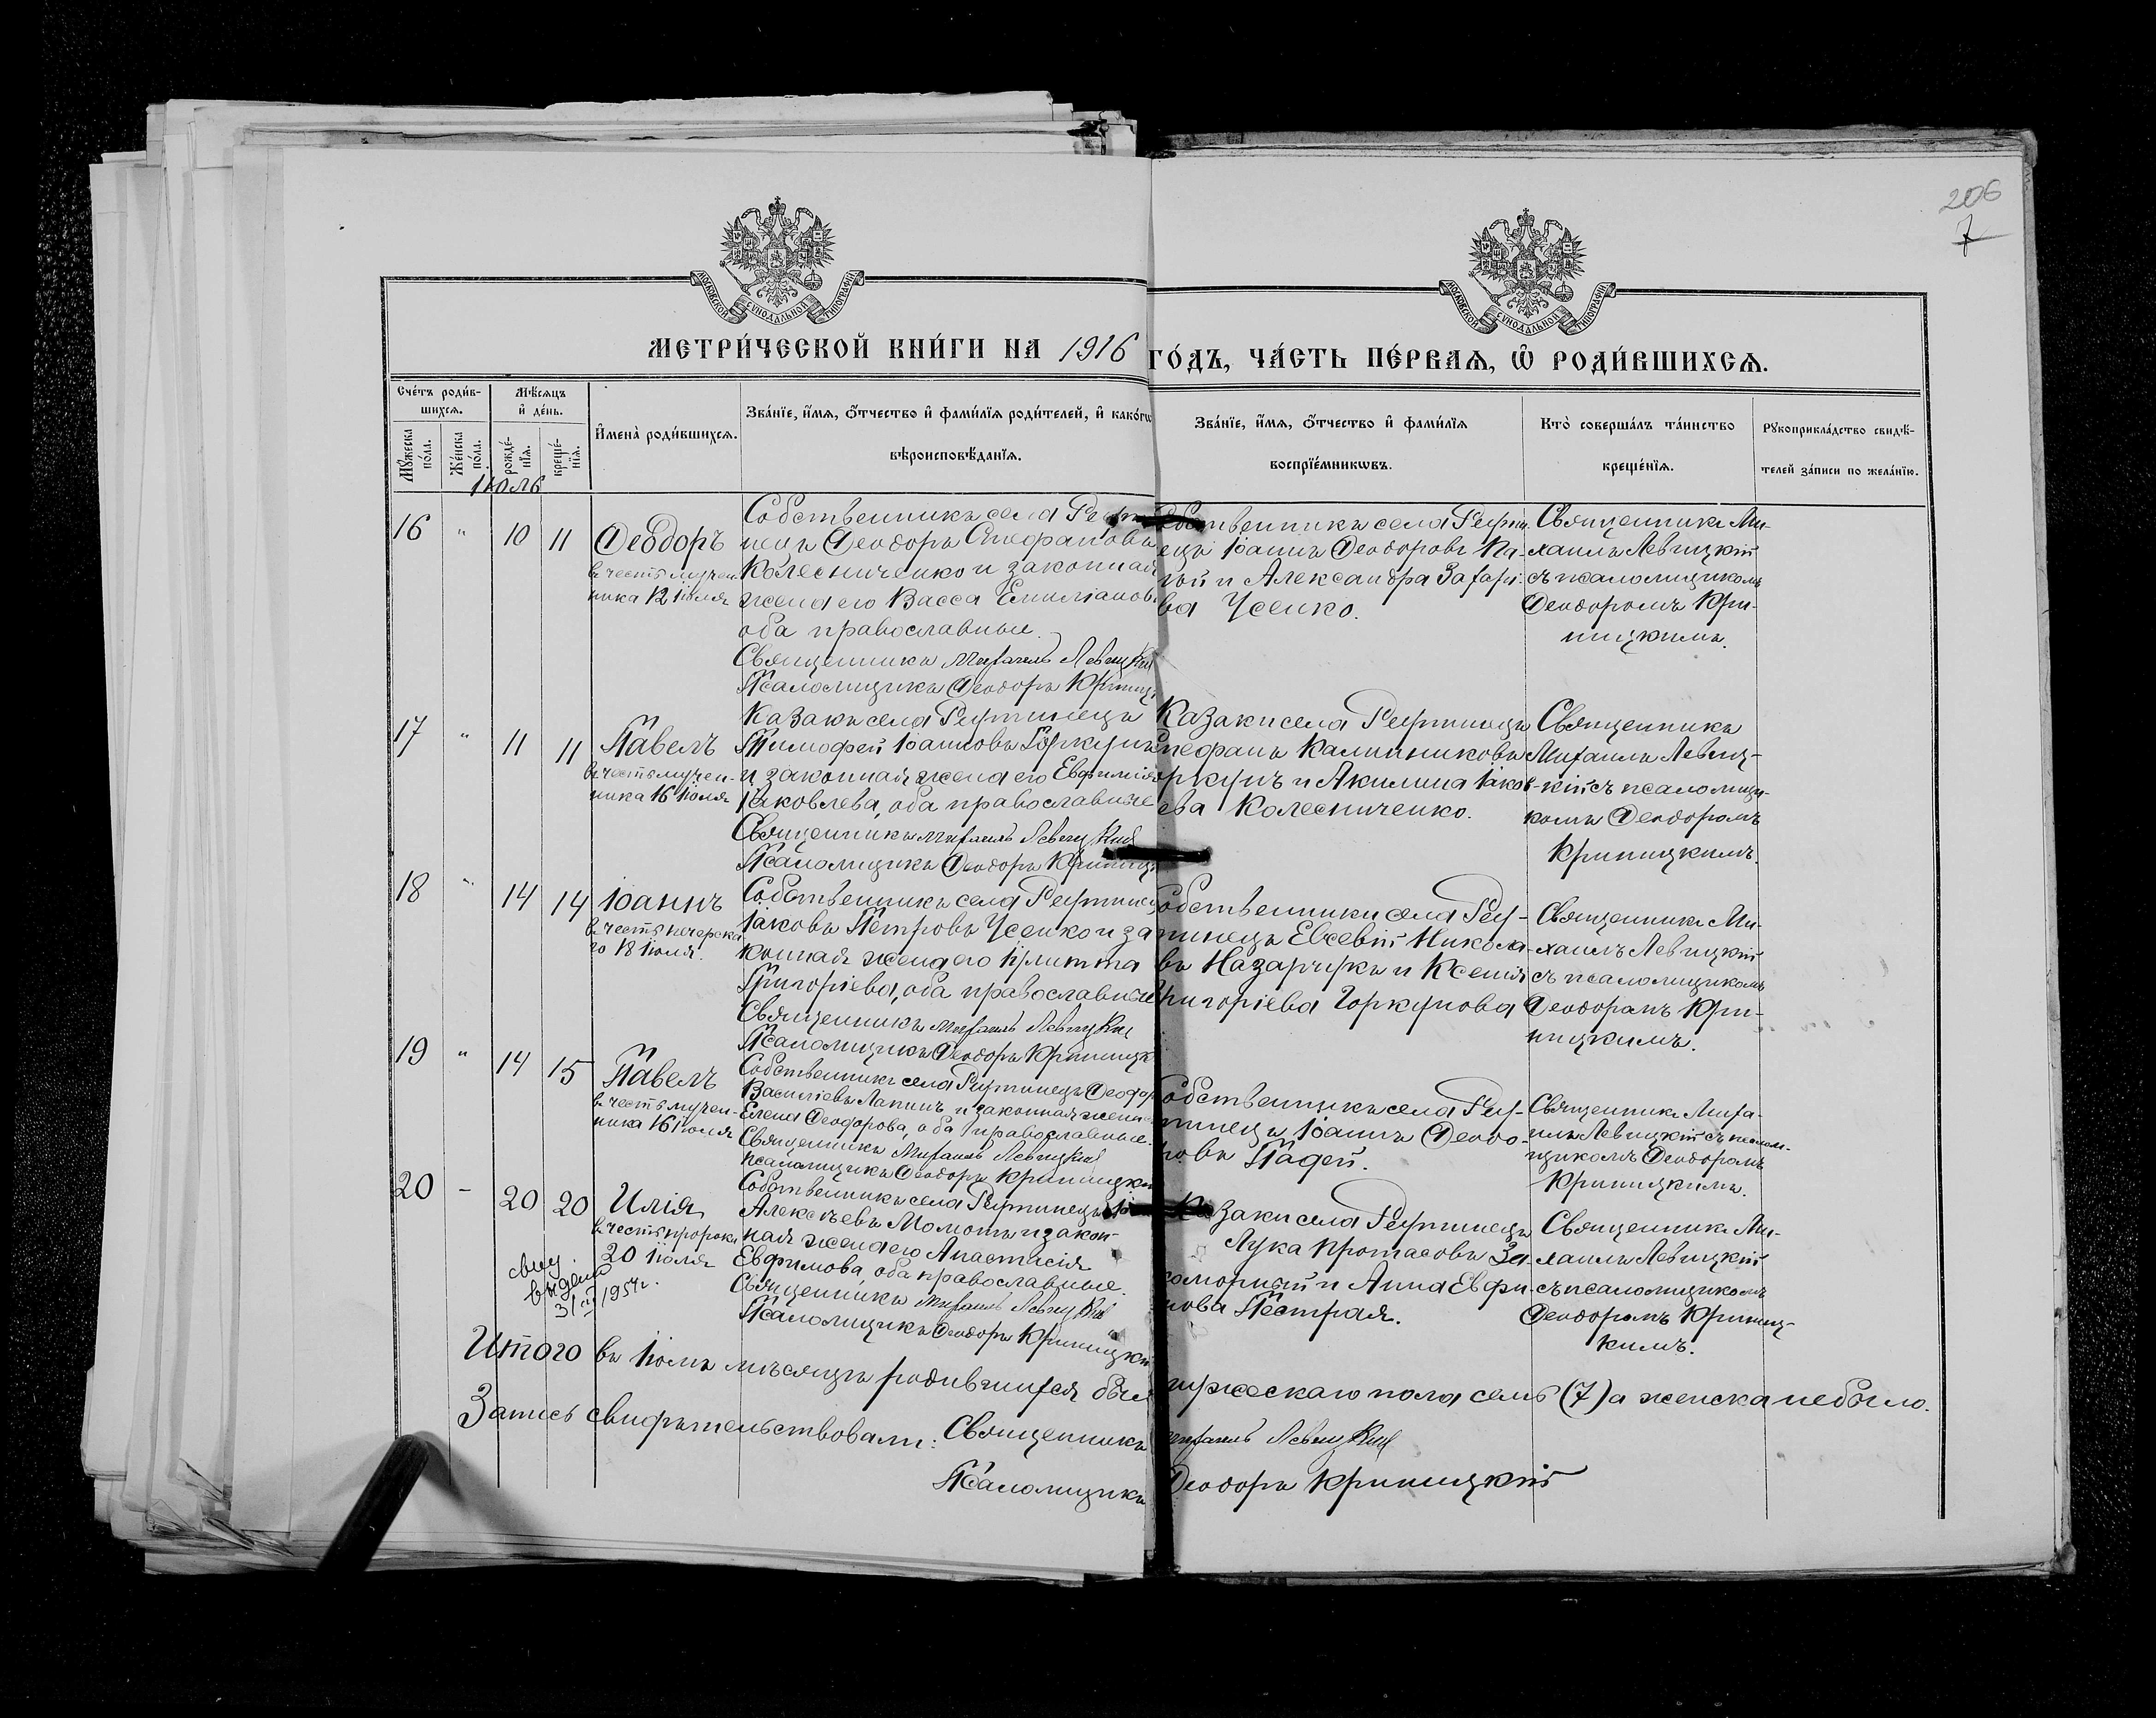 206
7
МОСКОВСКОЙ СѴНОДАЛЬНОЙ ТИПОГРАФІИ
МОСКОВСКОЙ СѴНОДАЛЬНОЙ ТИПОГРАФІИ
МЕТРИ́ЧЕСКОЙ КНИ́ГИ НА 1916 ГО́ДЪ, ЧА́СТЬ ПЕ́РВАѦ, Ѡ РОДИ́ВШИХСѦ.
Сче́тъ роди́в-
шихсѧ.
Мѣ́сѧцъ
и҆ де́нь.
Мꙋ́жеска
по́ла.
Же́нска
по́ла.
рожде́-
нїѧ.
креще́-
нїѧ.
И҆мена̀ роди́вшихсѧ.
Зва́нїе, и҆́мѧ, ѻ҆́тчество и҆ фами́лїѧ роди́телей, и҆ како́гѡ
вѣроисповѣ́данїѧ.
Зва́нїе, и҆́мѧ, ѻ҆́тчество и҆ фами́лїѧ
воспрїе́мникѡвъ.
Кто̀ соверша́лъ та́инство
креще́нїѧ.
Рꙋкоприкла́дство свидѣ́-
телей за́писи по жела́нїю.
Іюль
16 " 10 11 Ѳеодоръ
въ честь мучен-
ника 12 Іюля
Собственникъ села Реут
нецъ Ѳеодоръ Стефановъ
Колесниченко и законная
жена его Васса Емиліанов
оба православные.
Священникъ Михаилъ Левицкій
Псаломщикъ Ѳеодоръ Криниц
Собственникъ села Реути-
нецъ Іоаннъ Ѳеодоровъ Па-
гей и Александра Захарі-
ва Усенко.
Священникъ Ми-
хаилъ Левицкій
съ псаломщикомъ
Ѳеодоромъ Кри-
ницкимъ.
17 " 11 11 Павелъ
въ честь мучен-
ника 16 Іюля
Казакъ села Реутинецъ
Тимофей Іоанновъ Горкунъ
и законная жена его Евфимія
Іаковлева, оба православные
Священникъ Михаилъ Левицкій
Псаломщикъ Ѳеодоръ Криниц
Казаки села Реутинецъ
Стефанъ Калинниковъ
Горкунъ и Акилина Іаков-
лева Колесниченко.
Священникъ
Михаилъ Левиц-
кій съ псаломщи-
комъ Ѳеодоромъ
Криницкимъ.
18 " 14 14 Іоаннъ
въ честь печерска
го 18 Іюля.
Собственникъ села Реутинец
Іаковъ Петровъ Усенко и за
конная жена его Іулитта
Григоріева, оба православные
Священникъ Михаилъ Левицкій
Псаломщикъ Ѳеодоръ Криницк
Собственники села Реу-
тинецъ Евсевій Никола-
въ Назарчукъ и Ксенія
Григоріева Горкунова
Священникъ Ми-
хаилъ Левицкій
съ псаломщикомъ
Ѳеодоромъ Кри-
ницкимъ.
19 " 14 15 Павелъ
въ честь мучен-
ника 16 Іюля
Собственникъ села Реутинецъ Ѳеодор
Василіевъ Лапинъ и законная жена
Елена Ѳеодорова, оба православные.
Священникъ Михаилъ Левицкій
псаломщикъ Ѳеодоръ Криницкій
Собственникъ села Реу-
тинецъ Іоаннъ Ѳеодо-
ровъ Пагей.
Священникъ Миха-
илъ Левицкій съ псалом-
щикомъ Ѳеодоромъ
Криницкимъ.
20 - 20 20 Илія
въ честь пророка
20 Іюля
Собственникъ села Реутинецъ
Алексѣевъ Момотъ и закон-
ная жена его Анастасія
Евфимова, оба православные.
Священникъ Михаилъ Левицкій
Псаломщикъ Ѳеодоръ Криницкій
Казаки села Реутинецъ
Лука Протасовъ За-
коморный и Анна Евфи-
мова Пестрая.
Священникъ Ми-
хаилъ Левицкій
съ псаломщикомъ
Ѳеодоромъ Криниц-
кимъ.
выдано
31 1954г.
Итого въ Іюлѣ мѣсяцѣ родившихся было мужескаго пола семь (7) а женска не было.
Запись свидѣтельствовали: Священникъ Михаилъ Левицкій
Псаломщикъ Ѳеодоръ Криницкій